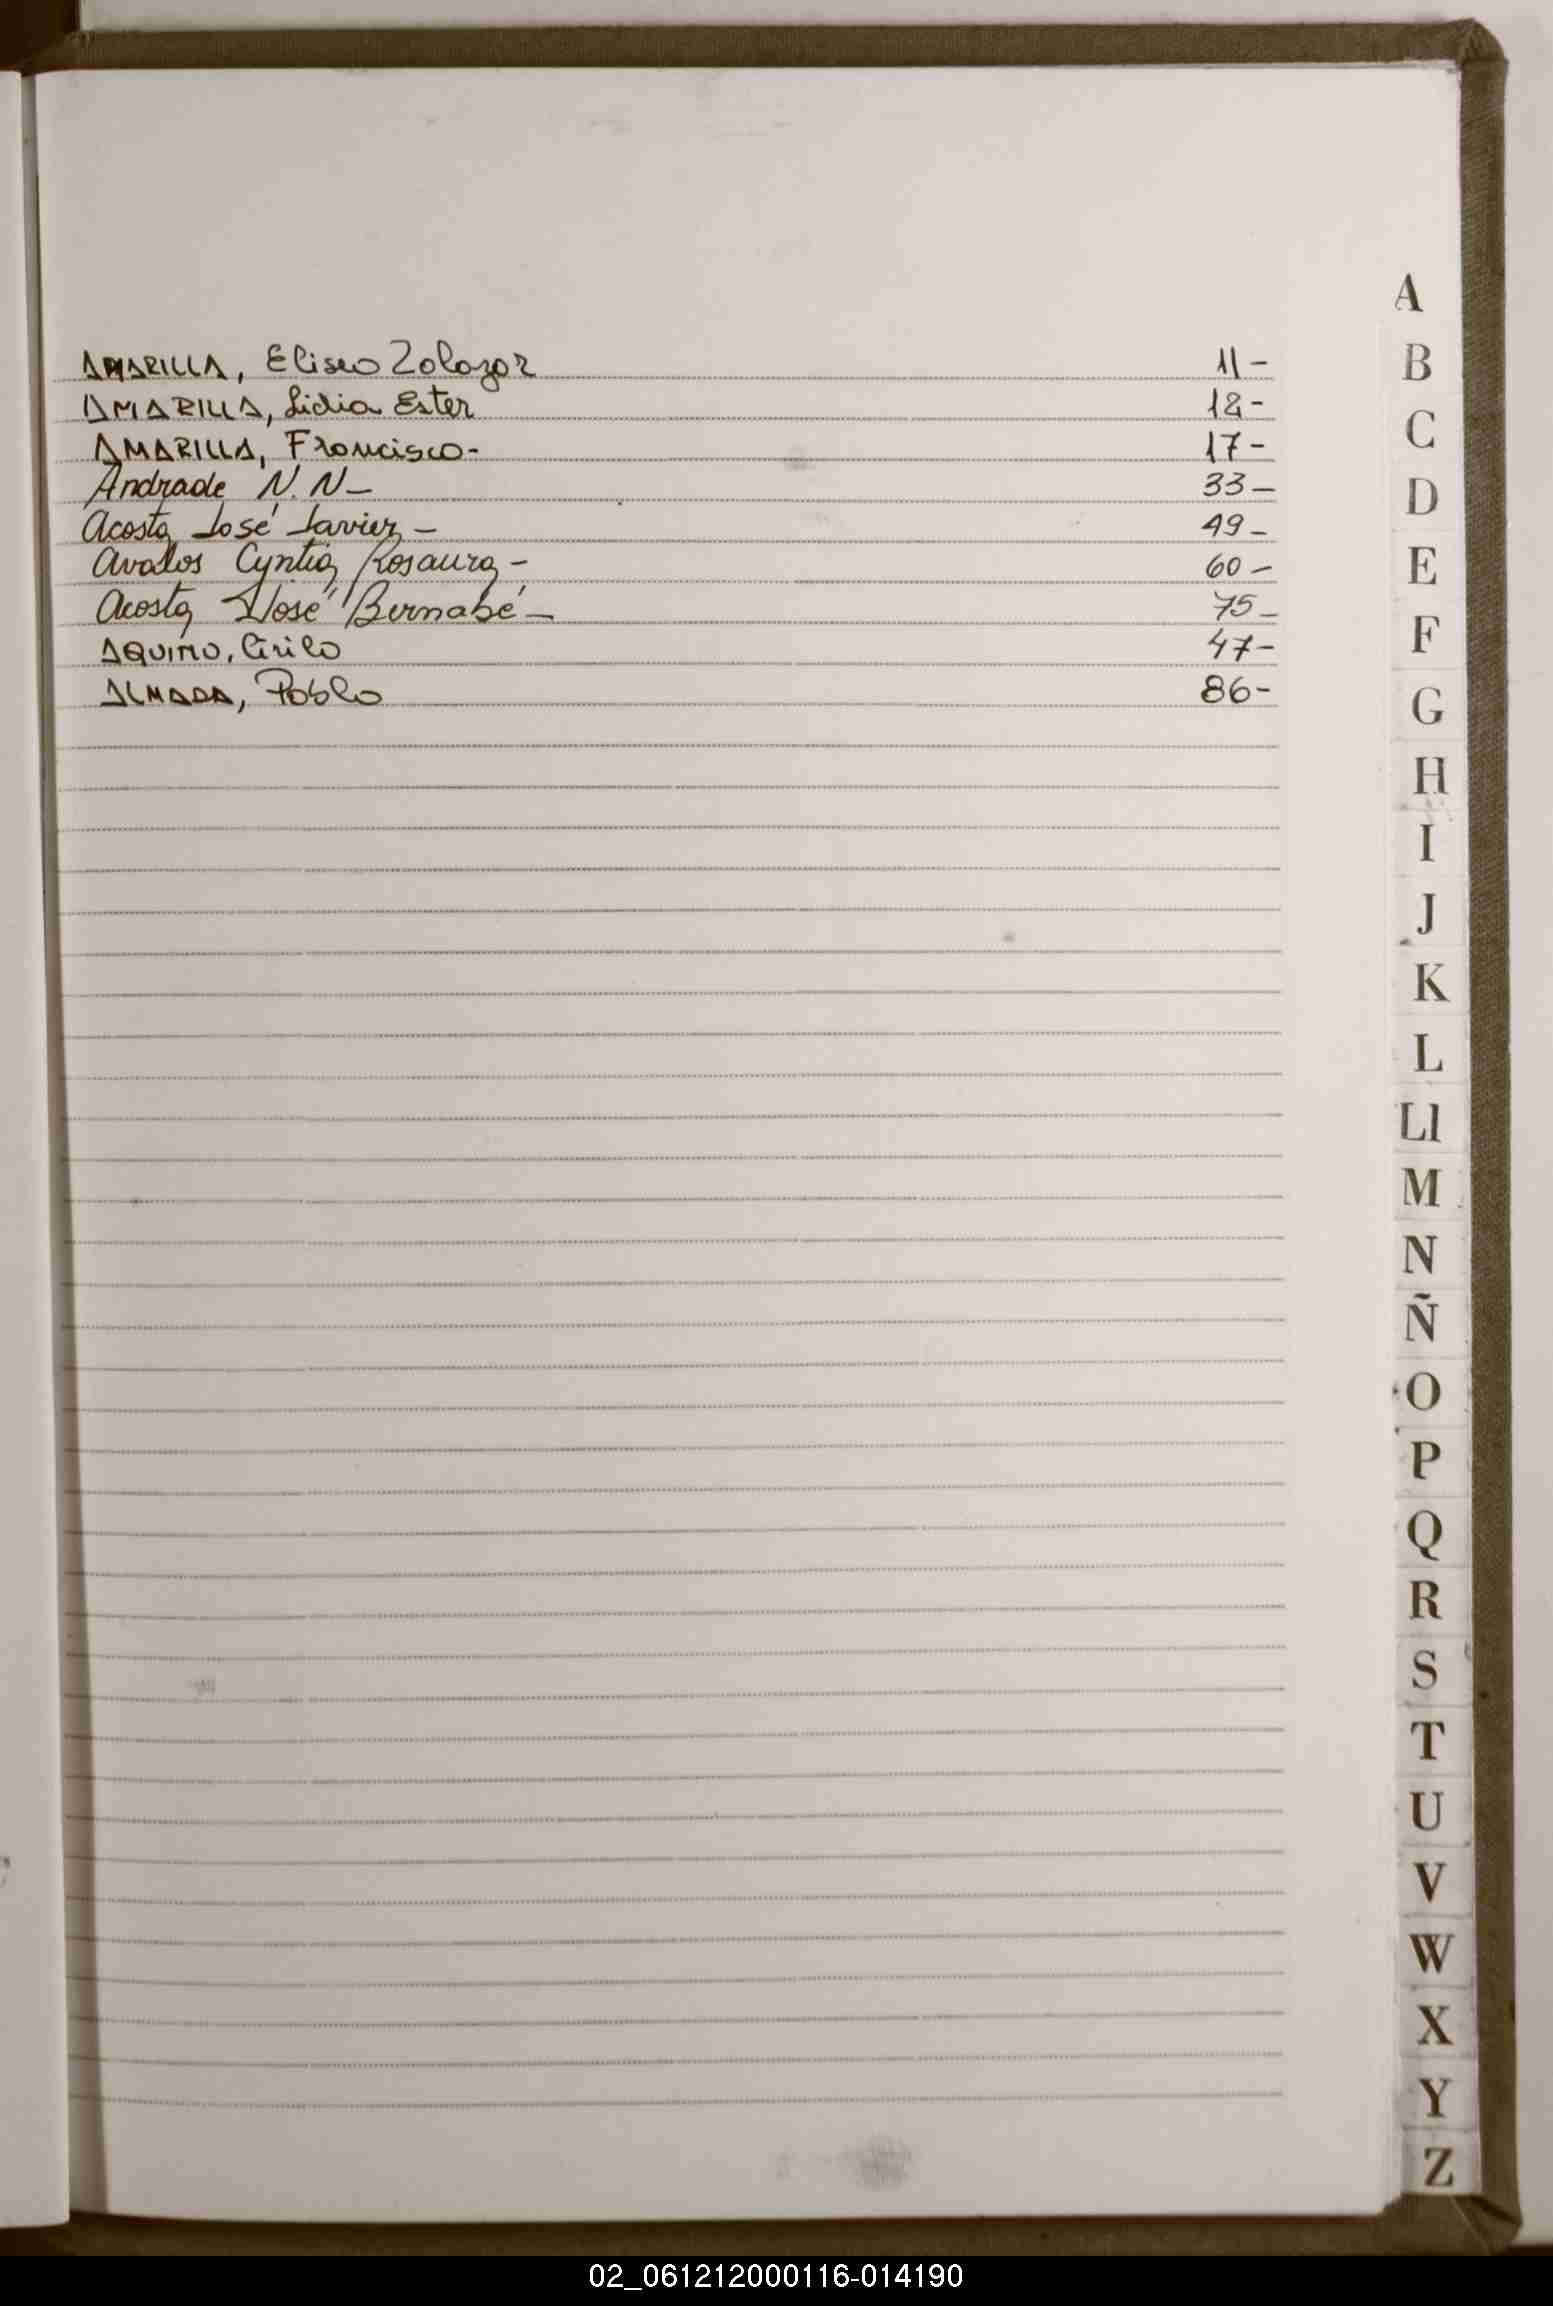 A
AMARILLA, Eliseo Zolazar 11-
AMARILLA, Lidia Ester 12-
AMARILLA, Francisco- 17-
Andrade N.N- 33-
Acosta José Javier- 49-
Avalos Cyntia Rosaura- 60-
Acosta José Bernabé- 75-
AQUINO, Cirilo 47-
ALMADA, Pablo 86-
B
C
D
E
F
G
H
I
J
K
L
Ll
M
N
Ñ
O
P
Q
R
S
T
U
V
W
X
Y
Z
02_061212000116-014190